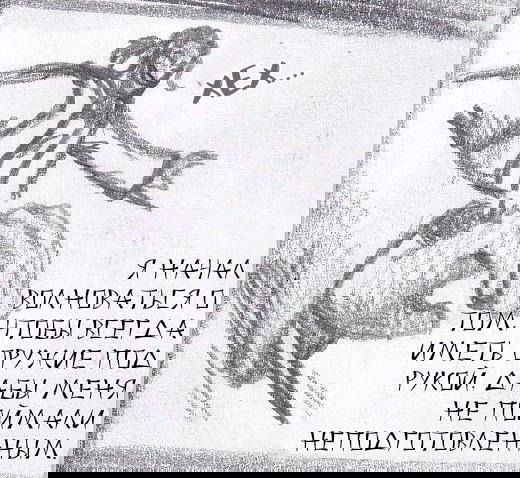 ХЕХ...
Я НАЧАЛ
ВОЛНОВАТЬСЯ О
ТОМ ЧТОБЫ ВСЕГДА
ИМЕТЬ ОРУЖИЕ ПОД
РУКОЙ ДАБЫ МЕНЯ
НЕ ПОЙМАЛИ
НЕПОДГОТОВЛЕННЫМ